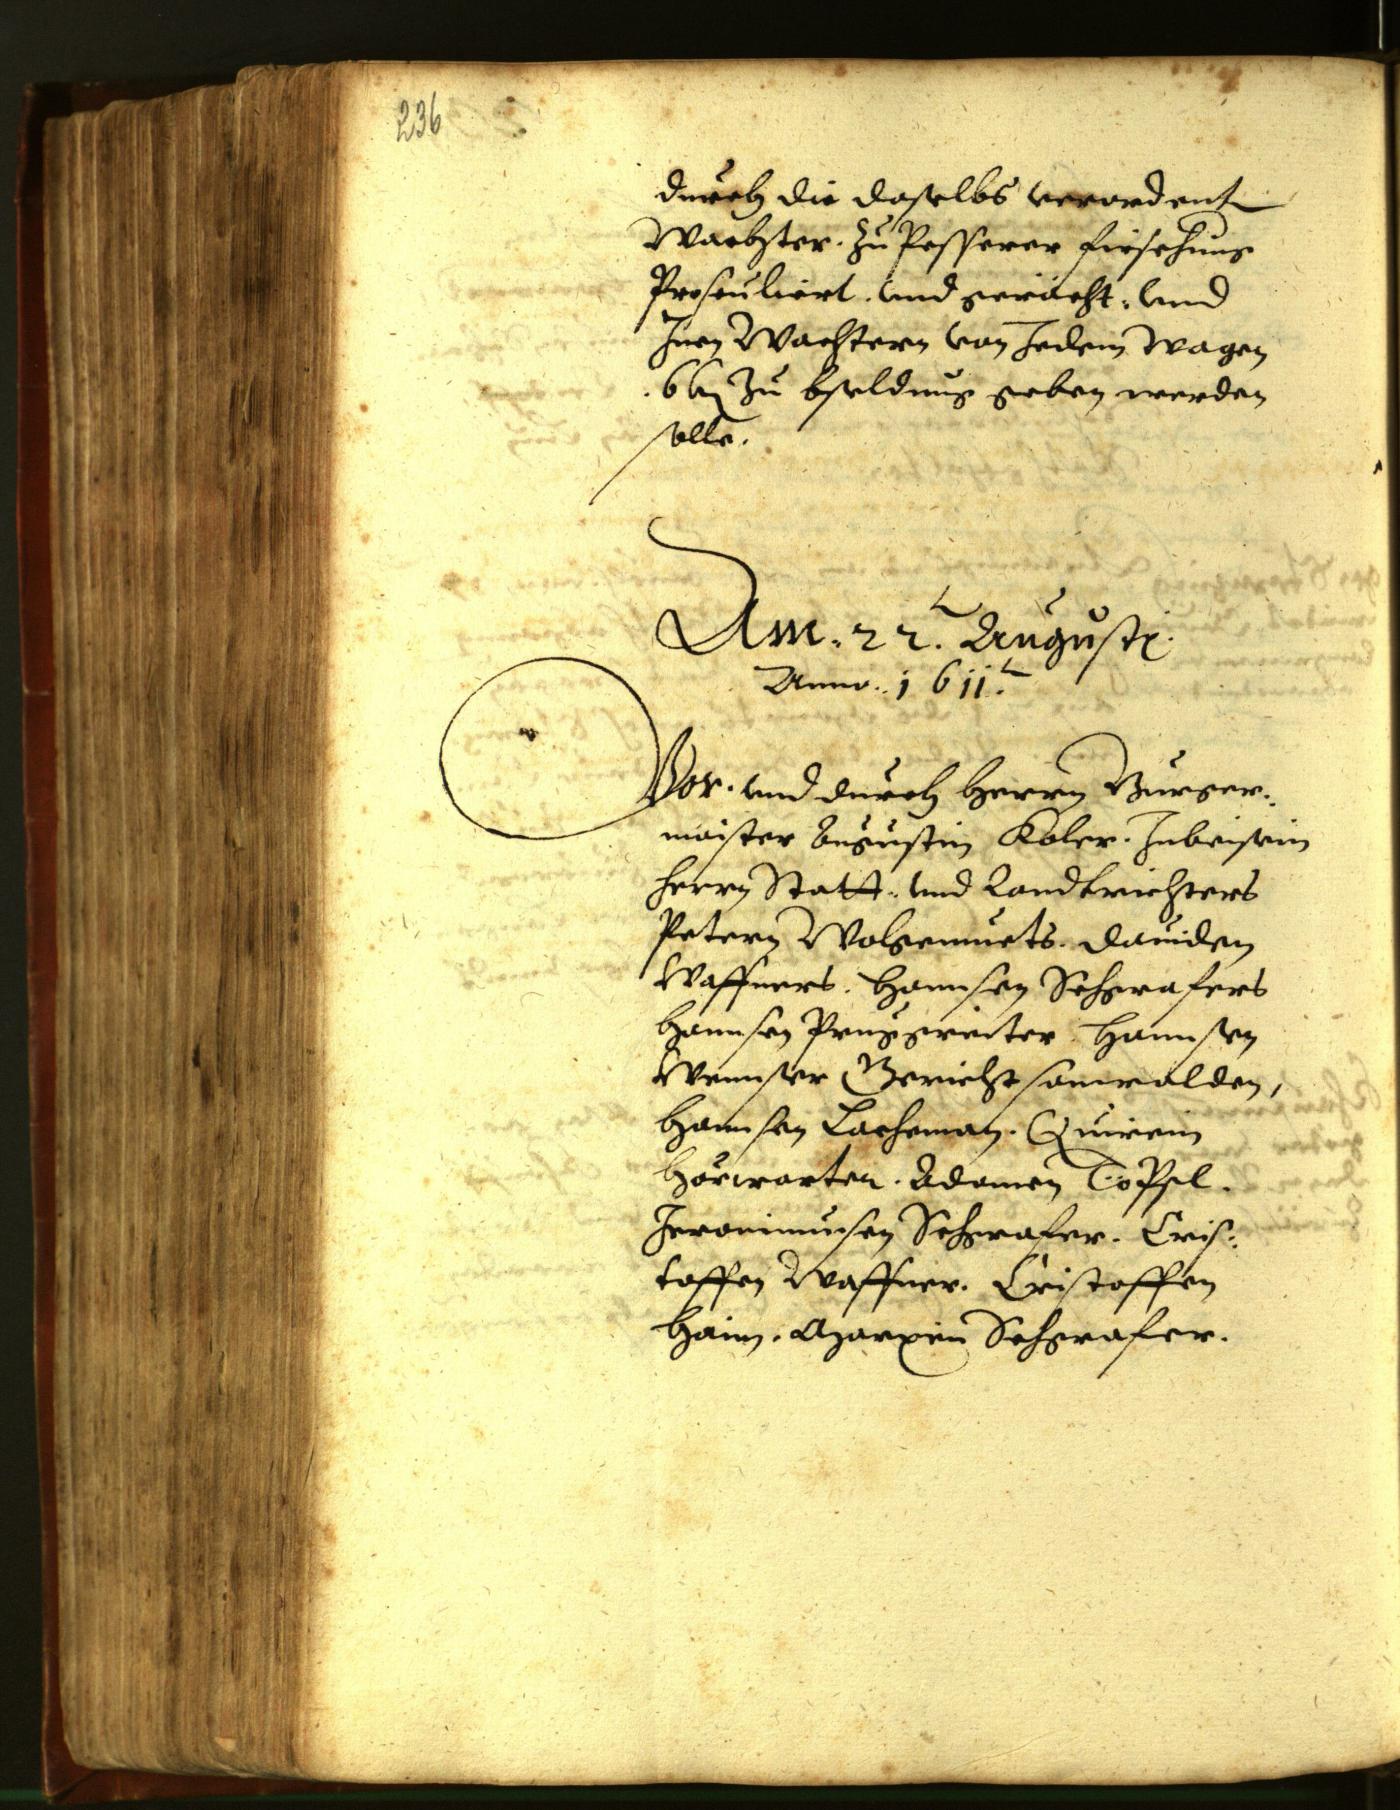 236
durch die daselbs verordent
Wachter. zu Pesserer fürsehung
Profuliert. vnd geräicht. vnd
Inen Wachtern von Jedem wagen
. 6 kr zu bsoldnug geben werden
solle.
Am. 22. Augustj.
Anno. 1611.
Vor. vnd durch herrn Burger:
maister Augustin Koler. Inbeisein
herrn Statt. vnd Landtrichters
Petern Wolgemuets. Dauiden
Waffners. Hannsen Schgrafers
Hannsen Pruggreiter. Hannsen
Wennser Gerichtsanwalden,
Hannsen Lachman. Quirein
Hörwarter. Adamen Töpsl.
Jeronimusen Schgrafer. Cris:
toffen Waffner. Cristoffen
Haim. Marxen Schgrafer.